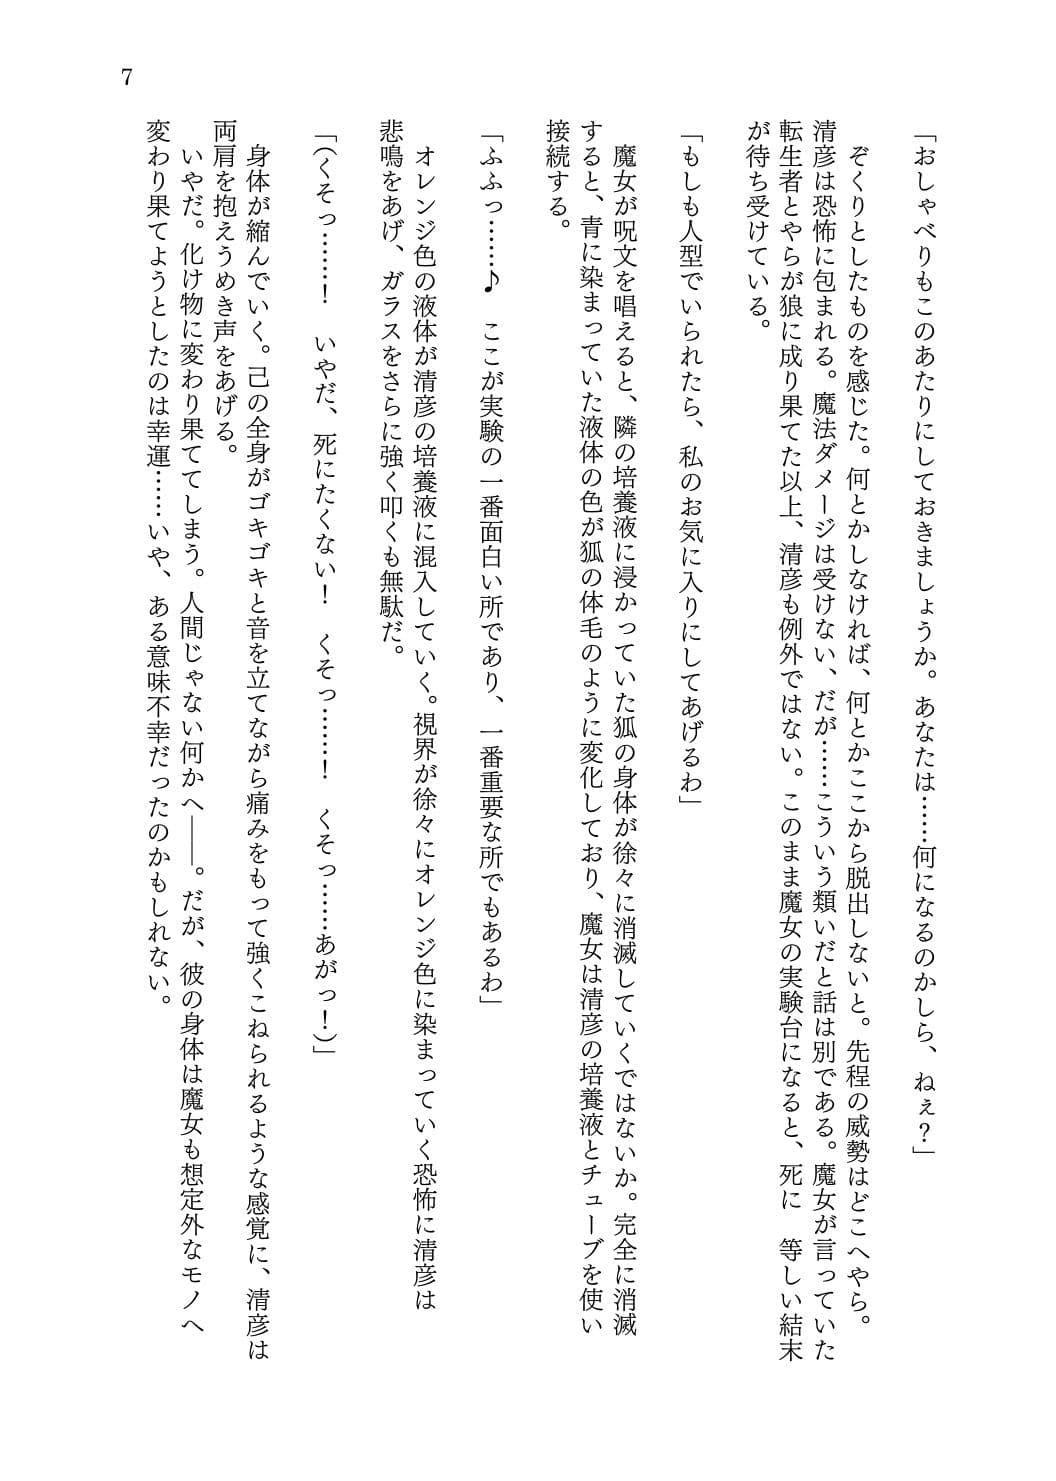 7
「おしゃべりもこのあたりにしておきましょうか。あなたは……何になるのかしら、ねぇ？」
ぞくりとしたものを感じた。何とかしなければ、何とかここから脱出しないと。先程の威勢はどこへやら。
清彦は恐怖に包まれる。魔法ダメージは受けない、だが……こういう類いだと話は別である。魔女が言っていた
転生者とやらが狼に成り果てた以上、清彦も例外ではない。このまま魔女の実験台になると、死に　等しい結末
が待ち受けている。
「もしも人型でいられたら、私のお気に入りにしてあげるわ」
魔女が呪文を唱えると、隣の培養液に浸かっていた狐の身体が徐々に消滅していくではないか。完全に消滅
すると、青に染まっていた液体の色が狐の体毛のように変化しており、魔女は清彦の培養液とチューブを使い
接続する。
「ふふっ……♪　ここが実験の一番面白い所であり、一番重要な所でもあるわ」
オレンジ色の液体が清彦の培養液に混入していく。視界が徐々にオレンジ色に染まっていく恐怖に清彦は
悲鳴をあげ、ガラスをさらに強く叩くも無駄だ。
「（くそっ……！　いやだ、死にたくない！　くそっ……！　くそっ……あがっ！）」
身体が縮んでいく。己の全身がゴキゴキと音を立てながら痛みをもって強くこねられるような感覚に、清彦は
両肩を抱えうめき声をあげる。
いやだ。化け物に変わり果ててしまう。人間じゃない何かへ――。だが、彼の身体は魔女も想定外なモノへ
変わり果てようとしたのは幸運……いや、ある意味不幸だったのかもしれない。